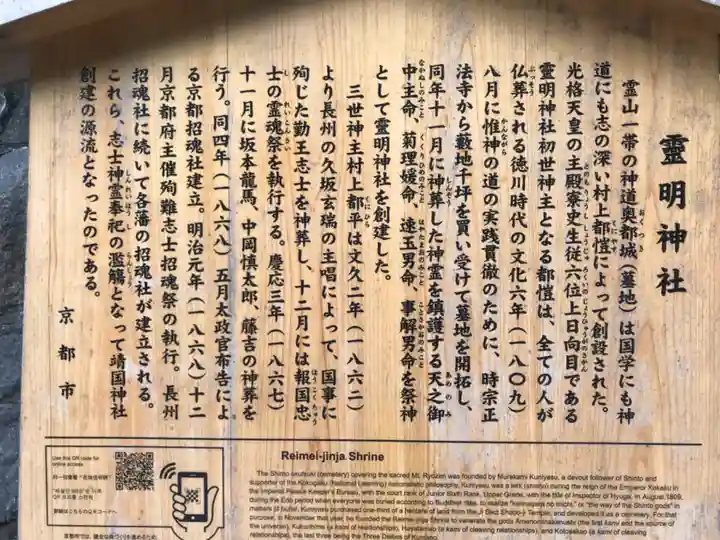 靈明神社
霊山一帯の神道奥都城（墓地）は国学にも神
道にも志の深い村上都愷によって創設された。
光格天皇の主殿寮史生従六位上日向目である
霊明神社初世神主となる都愷は、全ての人が
仏葬される徳川時代の文化六年（一八〇九）
八月に惟神の道の実践貫徹のために、時宗正
法寺から藪地千坪を買い受けて墓地を開拓し、
同年十一月に神葬した神霊を鎮護する天之御
中主命、菊理媛命、速玉男命、事解男命を祭神
として霊明神社を創建した。
三世神主村上都平は文久二年（一八六二）
より長州の久坂玄瑞の主唱によって、国事に
殉じた勤王志士を神葬し、十二月には報国忠
士の霊魂祭を執行する。慶応三年（一八六七）
十一月に坂本龍馬、中岡慎太郎、藤吉の神葬を
行う。同四年（一八六八）五月太政官布告によ
る京都招魂社建立。明治元年（一八六八）十二
月京都府主催殉難志士招魂祭の執行。長州
招魂社に続いて各藩の招魂社が建立される。
これら、志士神霊奉祀の濫觴となって靖国神社
創建の源流となったのである。
京都市
Use this QR code for
online access.
Reimei-jinja Shrine
The Shinto okutsuki (cemetery) covering the sacred Mt. Ryozen was founded by Murakami Kuniyasu, a devout follower of Shinto and
supporter of the Kokugaku (National Learning) nationalist philosophy. Kuniyasu was a
during the reign of the Emperor Kokaku in
the Imperial Palace Keeper's Bureau, with the court rank of Junior Sixth Rank, Upper Grade, with the title of Inspector of Hyuga. In August 1809,
during the Edo period when everyone was buried according to Buddhist rites, to realize "kannagara no michi," or "the way of the Shinto gods" in
matters of burial, Kuniyasu purchased one-third of a hectare of land from the Ji Sect Shoho-ji Temple, and developed it as a cemetery. For that
purpose, in November that year, he founded the Reimei-jinja Shrine to venerate the gods Amenominakanushi (the first kami and the source of
the universe), Kukurihime (a kami of relationships), Hayatamao (a kami of cleaving relationships), and Kotosakao (a kami of cleaving
relationships), the last three being the Three Deities of Kumano.